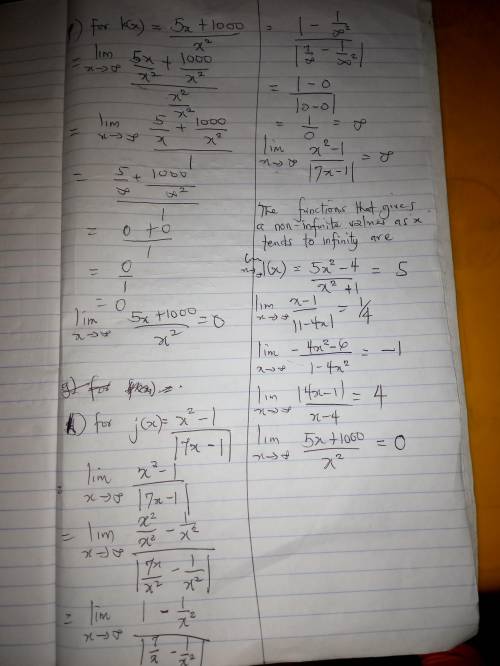 f) for k(x) = (5x + 1000)/x²
= lim x→∞ (5x/x² + 1000/x²)/(x²/x²)
= lim x→∞ (5/x + 1000/x²)/1
= (5/∞ + 1000/∞²)/1
= (0 + 0)/1
= 0/1
= 0
lim x→∞ (5x + 1000)/x² = 0
for j(x) = (x² - 1)/|7x - 1|
= lim x→∞ (x² - 1)/|7x - 1|
= lim x→∞ (x²/x² - 1/x²)/|7x/x² - 1/x²|
= lim x→∞ (1 - 1/x²)/|7/x - 1/x²|
= (1 - 1/∞²)/|7/∞ - 1/∞²|
= (1 - 0)/|0 - 0|
= 1/0 = ∞
lim x→∞ (x² - 1)/|7x - 1| = ∞
The functions that gives
a non-infinite values as x
tends to infinity are
lim x→∞ (x) = (5x² - 4)/(x² + 1) = 5
lim x→∞ (x - 1)/|1 - 4x| = 1/4
lim x→∞ - (4x² - 6)/(1 - 4x²) = -1
lim x→∞ |4x - 1|/(x - 4) = 4
lim x→∞ (5x + 1000)/x² = 0